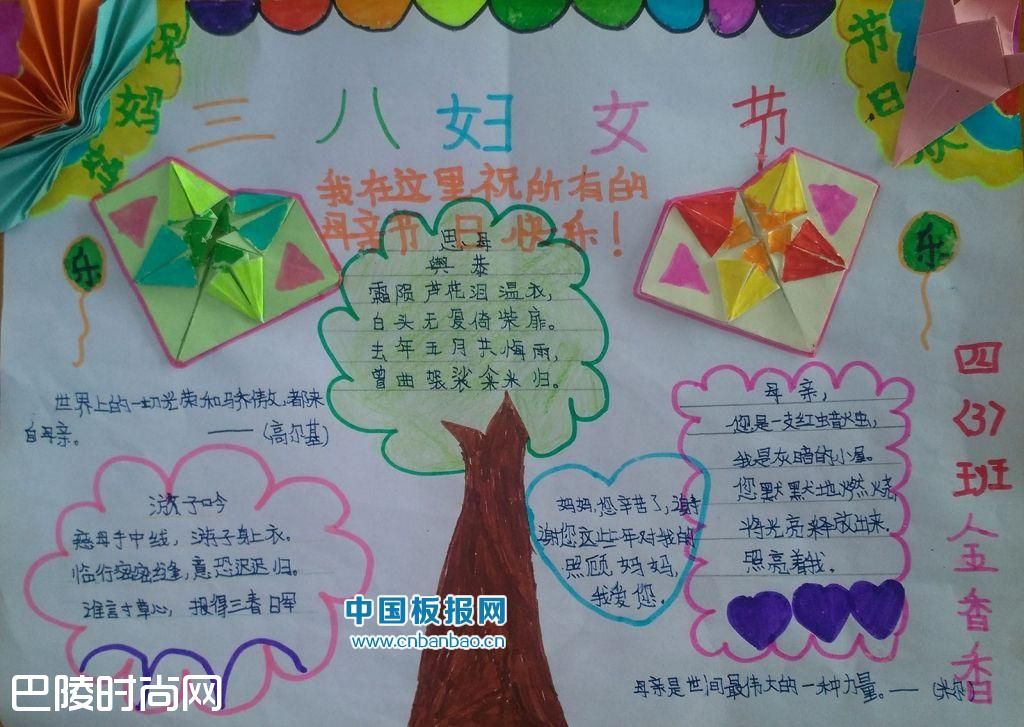 祝
妈
三八妇女节
节
日
我在这里祝所有的
母亲节日快乐！
乐
乐
思母
與恭
霜陨芦花泪湿衣，
白头无复倚柴扉。
去年五月共悔雨，
曾曲袈裟籴米归。
世界上的一切光荣和骄傲，都来
自母亲。
——（高尔基）
游子吟
慈母手中线，游子身上衣。
临行密密缝，意恐迟迟归。
谁言寸草心，报得三春日军
妈妈，您辛苦了，谢
谢您这些年对我的
照顾妈妈，
我爱您。
母亲，
您是一支红蜡虫，
我是灰暗的小屋。
您默默地燃烧，
将光亮释放出来。
照亮着我。
四〈3〉班
香
母亲是世间最伟大的一种力量。——（米尔）
中国板报网
www.cnbanbao.cn
巴陵时尚网